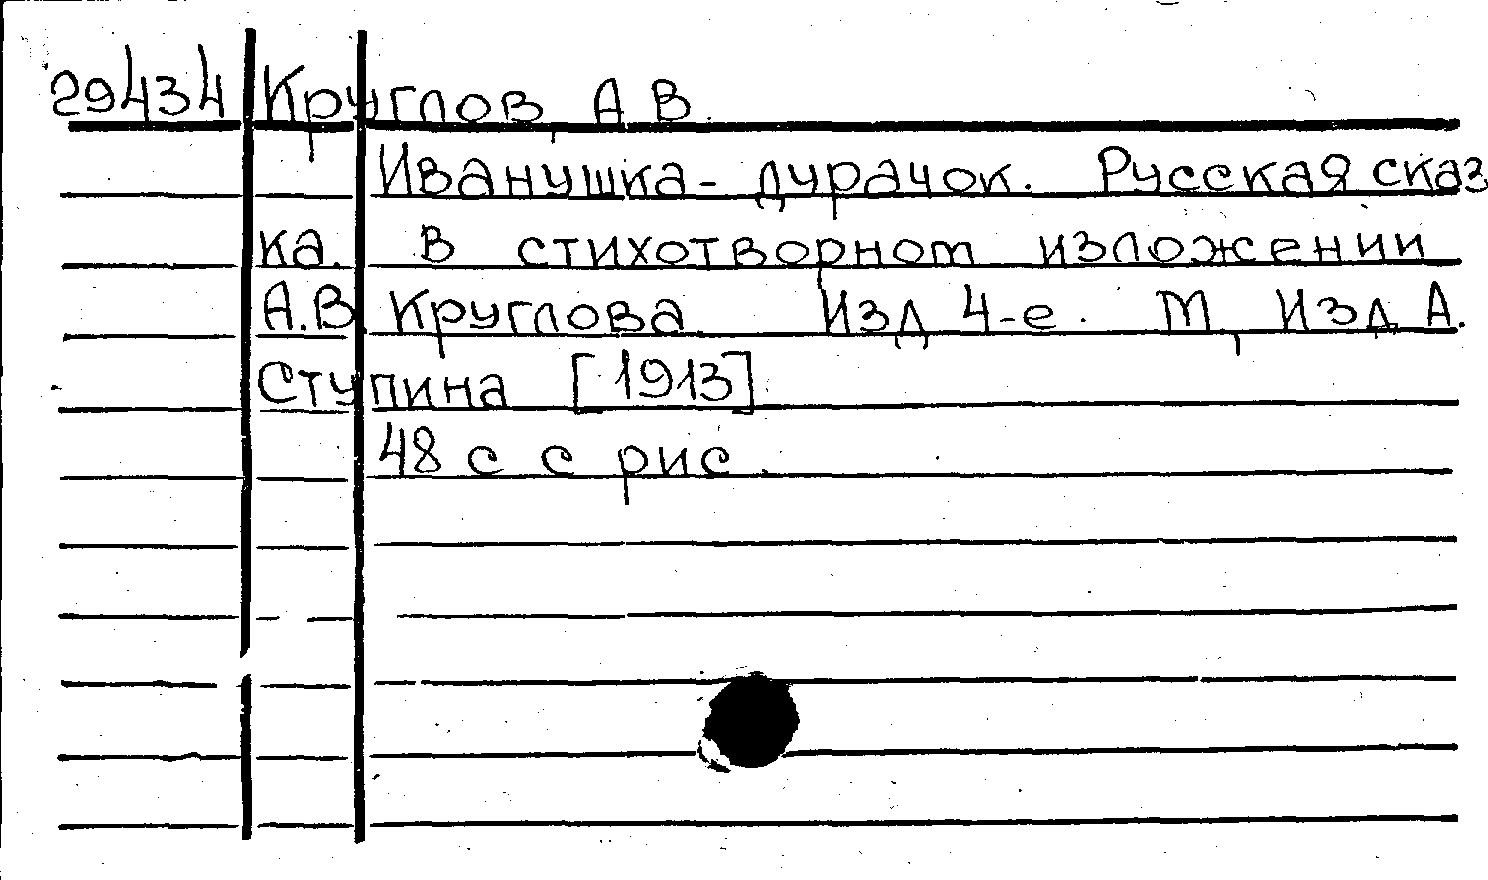 29434 Круглов, А В.
Иванушка-дурачок. Русская сказ
ка. В стихотворном изложении
А.В. Круглова Изд 4-е. М, Изд А.
Ступина [1913]
48 с с рис.